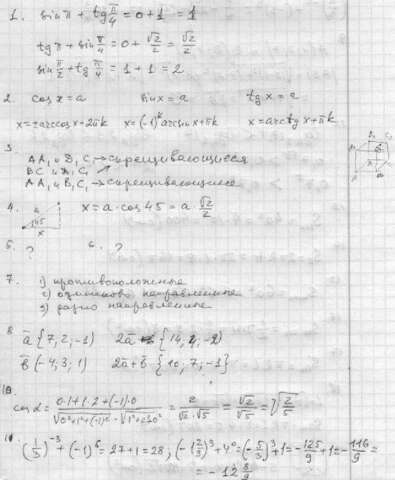 1. sin π + tg π/4 = 0 + 1 = 1
tg π + sin π/4 = 0 + √2/2 = √2/2
sin π/2 + tg π/4 = 1 + 1 = 2
2. cos x = a sin x = a tg x = a
x = ± arccos x + 2πk x = (-1)^k arcsin x + πk x = arctg x + πk
3.
AA₁ и D₁C₁ → скрещивающиеся
BC и A₁C₁ ↗
AA₁ и B₁C₁ → скрещивающиеся
4. a 45 x x = a · cos 45 = a · √2/2
5. ? 6. ?
7. 1) противоположные
2) одинаково направленные
3) разно направленные
8 ā {7, 2, -1} 2ā {14, 4, -2}
b̄ (-4, 3, 1) 2ā + b̄ {10, 7, -1}
10.
cos α = = 2/(√2·√5) = √2/√5 = √(2/5)
11. (1/3)^-3 + (-1)^6 = 27 + 1 = 28, (-1 2/3)^3 + 4^0 = (-5/3)^3 + 1 = -125/9 + 1 = -116/9 =
= -12 8/9